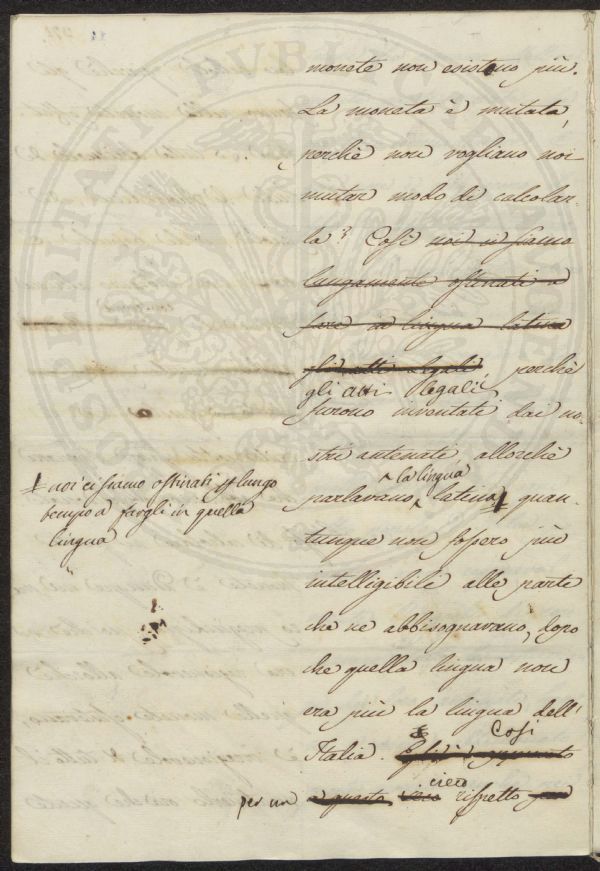 monete non esistono più.
La moneta è mutata,
perchè non vogliamo noi
mutar modo di calcolar-
la? Così noi ci siamo
lungamente ostinati a
fare in lingua latina
gli atti legali perchè
gli atti legali
furono inventati dai no-
stri antenati, allorchè
la lingua
parlavano latina, quan-
noi ci siamo ostinati pf lungo
tempo a fargli in quella
lingua
tunque non fossero più
intelligibili alle parte
che ne abbisognavano, dopo
che quella lingua non
era più la lingua dell'
Così
Italia. Egli è appunto
cieco
per un a questo cieco rispetto